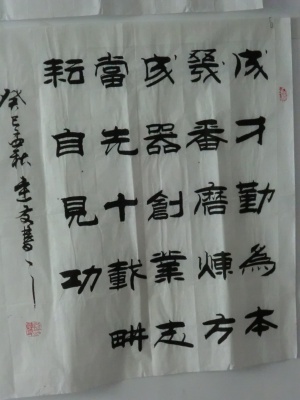 成才勤為本
幾番磨煉方
成器創業志
當先十載畊
耘自見功
癸巳孟秋建書